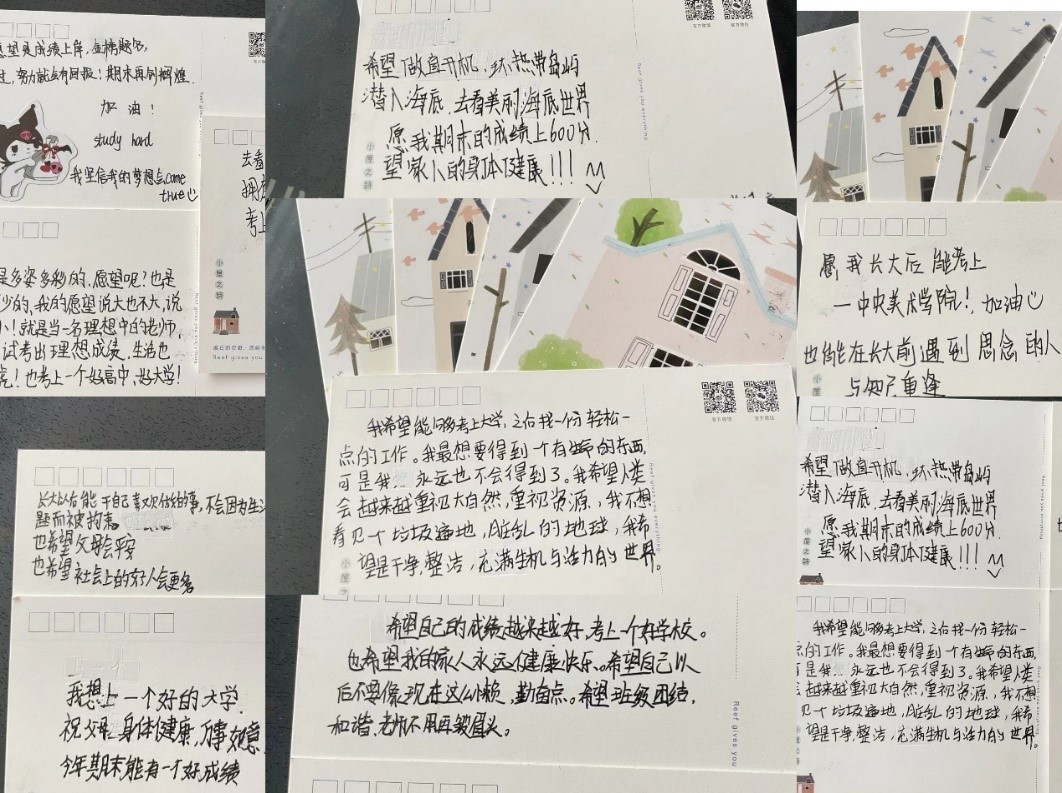 愿望是成绩上岸,金榜题名,
过,努力就会有回报!期末再创辉煌
加油!
study hard
我坚信我的梦想会come
true
去看
拥
考上
小屋之诗
Reef gives you
是多姿多彩的,愿望呢?也是
少的,我的愿望说大也不大,说
小!就是当一名理想中的老师,
试考出理想成绩,生活也
!也考上一个好高中,好大学!
长大以后能干自己喜欢做的事,不会因为生活
题而被拘束
也希望父母会平安
也希望社会上的好人会更多
我想上一个好的大学.
祝父母身体健康,万事如意
今年期末能有一个好成绩
希望做直升机,环热带岛屿
潜入海底,去看美丽海底世界
愿我期末的成绩上600分.
望家人的身体健康!!!
小屋之诗
我希望能够考上大学,之后找一份轻松一
点的工作。我最想要得到一个有生命的东西,
可是我...永远也不会得到了。我希望人类
会越来越重视大自然,重视资源,我不想
看见一个垃圾遍地,脏乱的地球,我希
望是干净,整洁,充满生机与活力的世界。
希望自己的成绩越来越好,考上一个好学校。
也希望我的家人永远健康快乐。希望自己以
后不要像现在这么小懒,勤奋点。希望班级团结,
和谐,老师不用再皱眉头。
Reef gives you
愿我长大后能考上
一中央美术学院!加油
也能在长大前遇到思念的人
与知了重逢
希望做直升机,环热带岛屿
潜入海底,去看美丽海底世界
愿我期末的成绩上600分.
望家人的身体健康!!!
我希望能够考上大学,之后找一份轻松一
的工作。我最想要得到一个有生命的东西,
是我...永远也不会得到了。我希望人类
越来越重视大自然,重视资源,我不想
见一个垃圾遍地,脏乱的地球,我希
望是干净,整洁,充满生机与活力的世界。